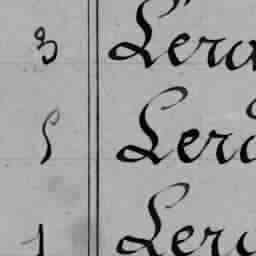 3 Lero
5 Lero
1 Lero